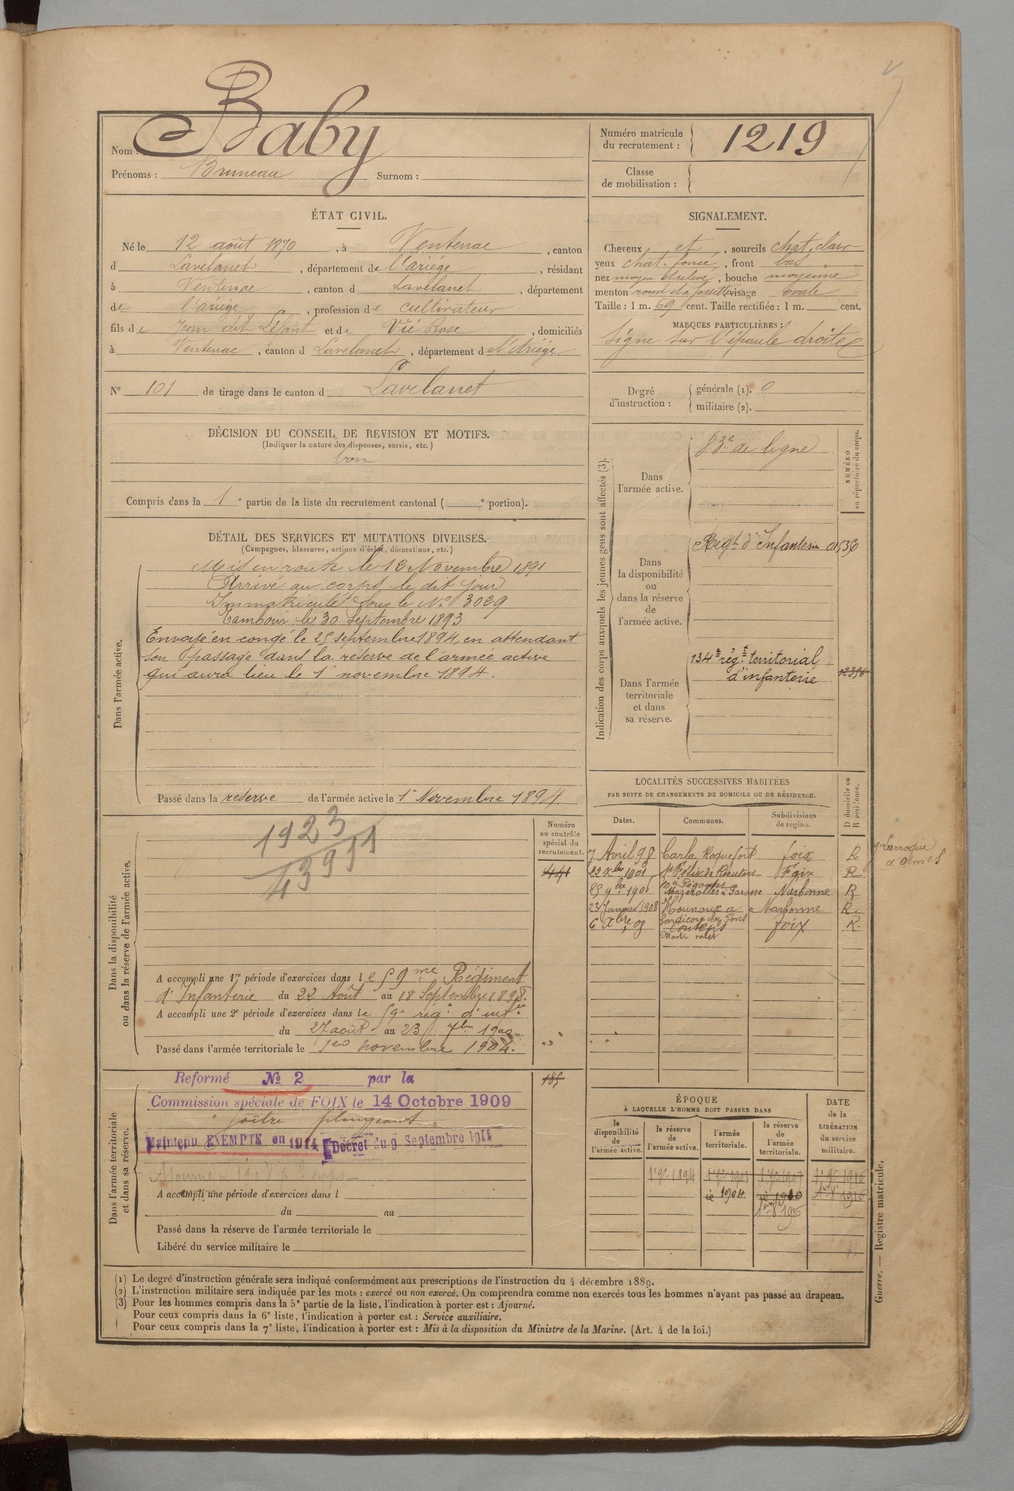 Nom : Baby
Prénoms : Bruneau Surnom :
Numéro matricule du recrutement : 1219
Classe de mobilisation :
ÉTAT CIVIL.
Né le 12 août 1870, à Ventenac, canton
d Lavelanet, département de l'ariège, résidant
à Ventenac, canton d Lavelanet, département
de l'ariège, profession de cultivateur
fils de Jean dit et de Vié Rose, domiciliés
à Ventenac, canton d Lavelanet, département d l'Ariège
N° 101 de tirage dans le canton d Lavelanet
SIGNALEMENT.
Cheveux et, sourcils chat. clair
yeux chat. foncé, front bas
nez moyen, bouche moyenne
menton rond et à visage ovale
Taille : 1 m. 69 cent. Taille rectifiée : 1 m. cent.
MARQUES PARTICULIÈRES :
Signe sur l'épaule droite
Degré d'instruction : générale (1). 0
militaire (2).
DÉCISION DU CONSEIL DE REVISION ET MOTIFS.
(Indiquer la nature des dispenses, sursis, etc.)
bon
Compris dans la 1e partie de la liste du recrutement cantonal ( e portion).
DÉTAIL DES SERVICES ET MUTATIONS DIVERSES.
(Campagnes, blessures, actions d'éclat, décorations, etc.)
Dans l'armée active.
Mis en route le 12 Novembre 1891
Arrivé au corps le dit jour
Immatriculé sous le N° 3029
Tambour le 30 Septembre 1893
Envoyé en congé le 25 septembre 1894, en attendant
son passage dans la réserve de l'armée active
qui aura lieu le 1er novembre 1894.
Passé dans la réserve de l'armée active le 1er Novembre 1894
Indication des corps auxquels les jeunes gens sont affectés (3).
NUMÉRO au répertoire du corps.
Dans l'armée active.
83e de ligne
Dans la disponibilité ou dans la réserve de l'armée active.
Régt. d'Infanterie
Dans l'armée territoriale et dans sa réserve.
134e régt. territorial
d'infanterie
LOCALITÉS SUCCESSIVES HABITÉES
PAR SUITE DE CHANGEMENTS DE DOMICILE OU DE RÉSIDENCE.
Dates. Communes. Subdivisions de région. D domicile ou R résidence.
7 Avril 98 Carla Roquefort foix R
St Félix de Foix R
Mazerolles Narbonne R
23 Janvier 1908 Narbonne R.
foix R.
Larroque
d'Olmes
Dans la disponibilité ou dans la réserve de l'armée active.
Numéro au contrôle spécial du recrutement.
441
1923
A accompli une 1re période d'exercices dans le 59me Régiment
d'Infanterie du 22 Août au 18 Septembre 1898.
A accompli une 2e période d'exercices dans le 59e rég. d'inf.
du 27 août au 23 7bre
Passé dans l'armée territoriale le 1er novembre 1904.
Dans l'armée territoriale et dans sa réserve.
185
Reformé No 2 par la
Commission spéciale de FOIX le 14 Octobre 1909
goître plongeant
Maintenu EXEMPTE en 1914 Décret du 9 Septembre 1914
A accompli une période d'exercices dans l
du au
Passé dans la réserve de l'armée territoriale le
Libéré du service militaire le
ÉPOQUE
À LAQUELLE L'HOMME DOIT PASSER DANS
la disponibilité de l'armée active.
la réserve de l'armée active.
l'armée territoriale.
la réserve de l'armée territoriale.
DATE de la LIBÉRATION du service militaire.
1er 9bre 1894
1904
1910
1916
Guerre. — Registre matricule.
(1) Le degré d'instruction générale sera indiqué conformément aux prescriptions de l'instruction du 4 décembre 1889.
(2) L'instruction militaire sera indiquée par les mots : exercé ou non exercé. On comprendra comme non exercés tous les hommes n'ayant pas passé au drapeau.
(3) Pour les hommes compris dans la 5e partie de la liste, l'indication à porter est : Ajourné.
Pour ceux compris dans la 6e liste, l'indication à porter est : Service auxiliaire.
Pour ceux compris dans la 7e liste, l'indication à porter est : Mis à la disposition du Ministre de la Marine. (Art. 4 de la loi.)